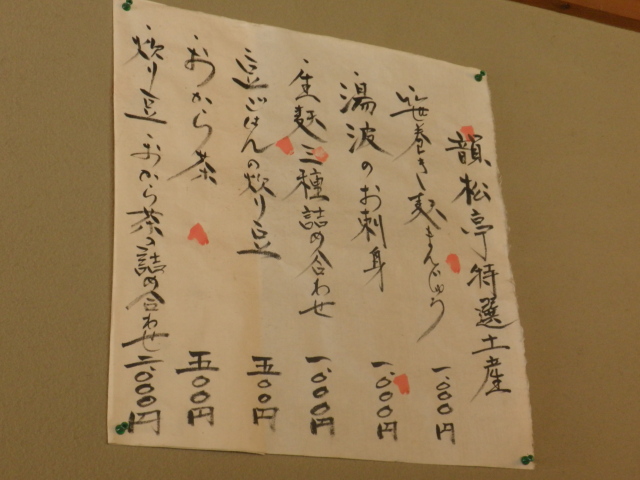 韻松亭特選土産
・笹巻き麩まんじゅう 一、〇〇〇円
・湯波のお刺身 一、〇〇〇円
・生麩三種詰め合わせ 一、〇〇〇円
・豆ごはんの炒り豆 五〇〇円
・おから茶 五〇〇円
・炒り豆・おから茶の詰め合わせ 一、〇〇〇円